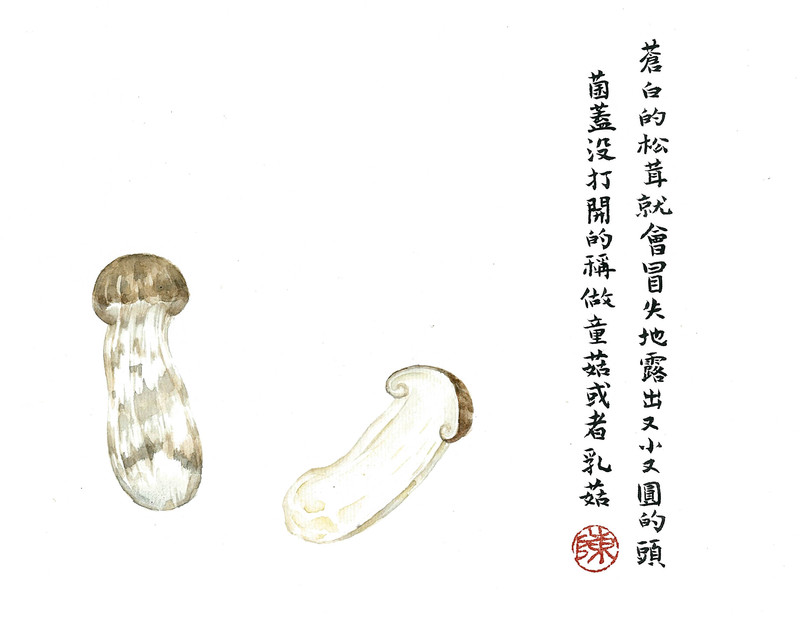 蒼白的松茸就會冒失地露出又小又圓的頭
菌蓋没打開的稱做童菇或者乳菇
陳